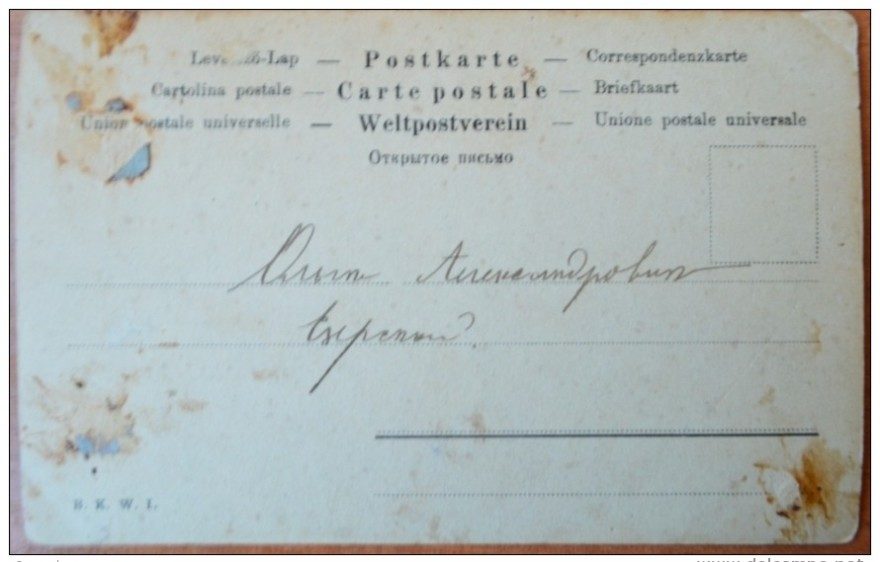 Levelező-Lap — Postkarte — Correspondenzkarte
Cartolina postale — Carte postale — Briefkaart
Union postale universelle — Weltpostverein — Unione postale universale
Открытое письмо
Александрович
B. K. W. I.